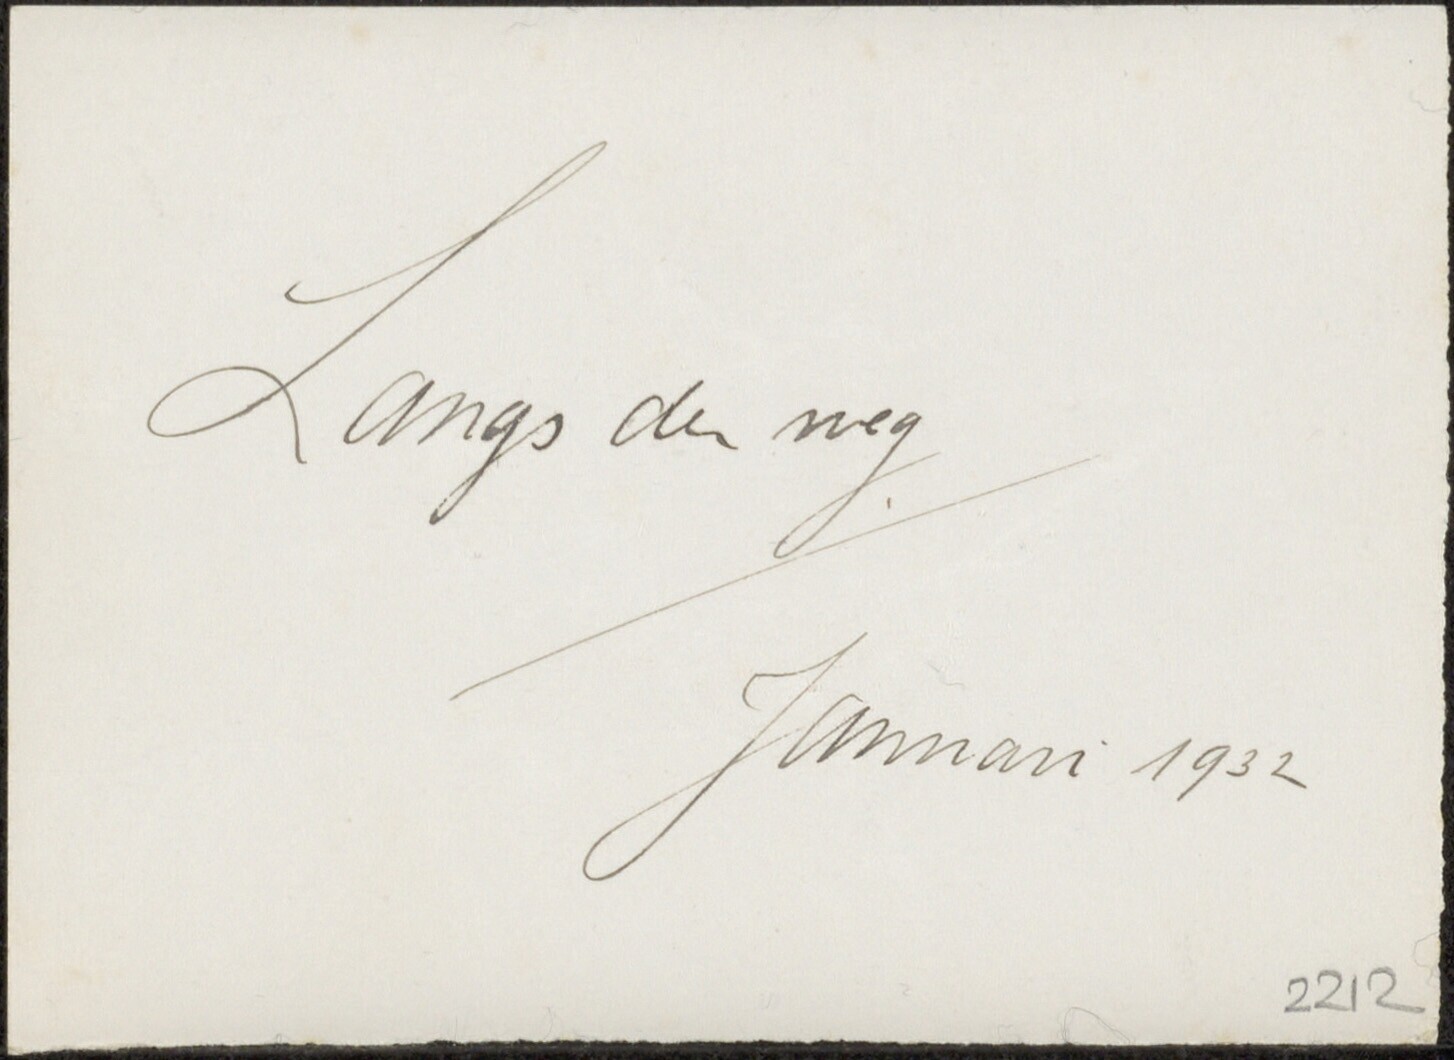 Langs den weg.
Januari 1932
2212